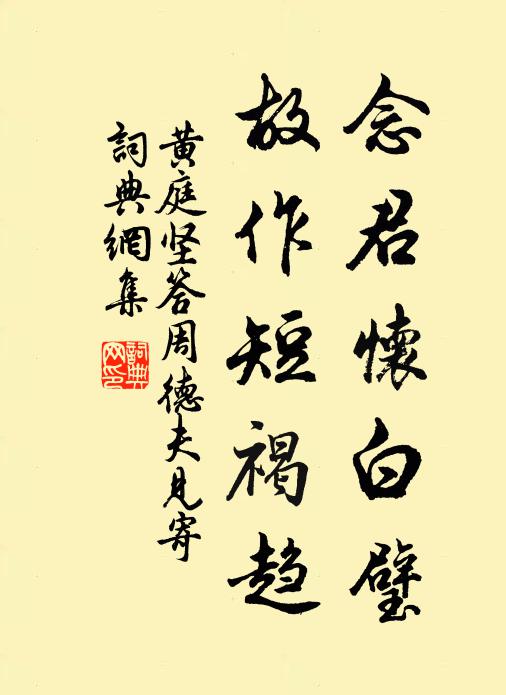 念君懷白璧
故作短褐趋
黄庭坚答周德夫見寄
詞典網集
詞典网印